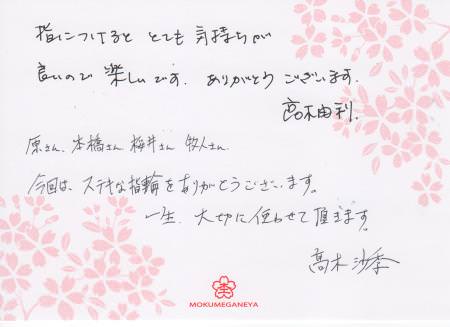 指につけると とても 気持ちが
良いので 楽しいです. ありがとう ございます.
高木由利.
原さん、本橋さん 梅井さん 牧人さん.
今回は、ステキな指輪をありがとうございます。
一生、大切に使わせて頂きます。
高木 沙季
MOKUMEGANEYA